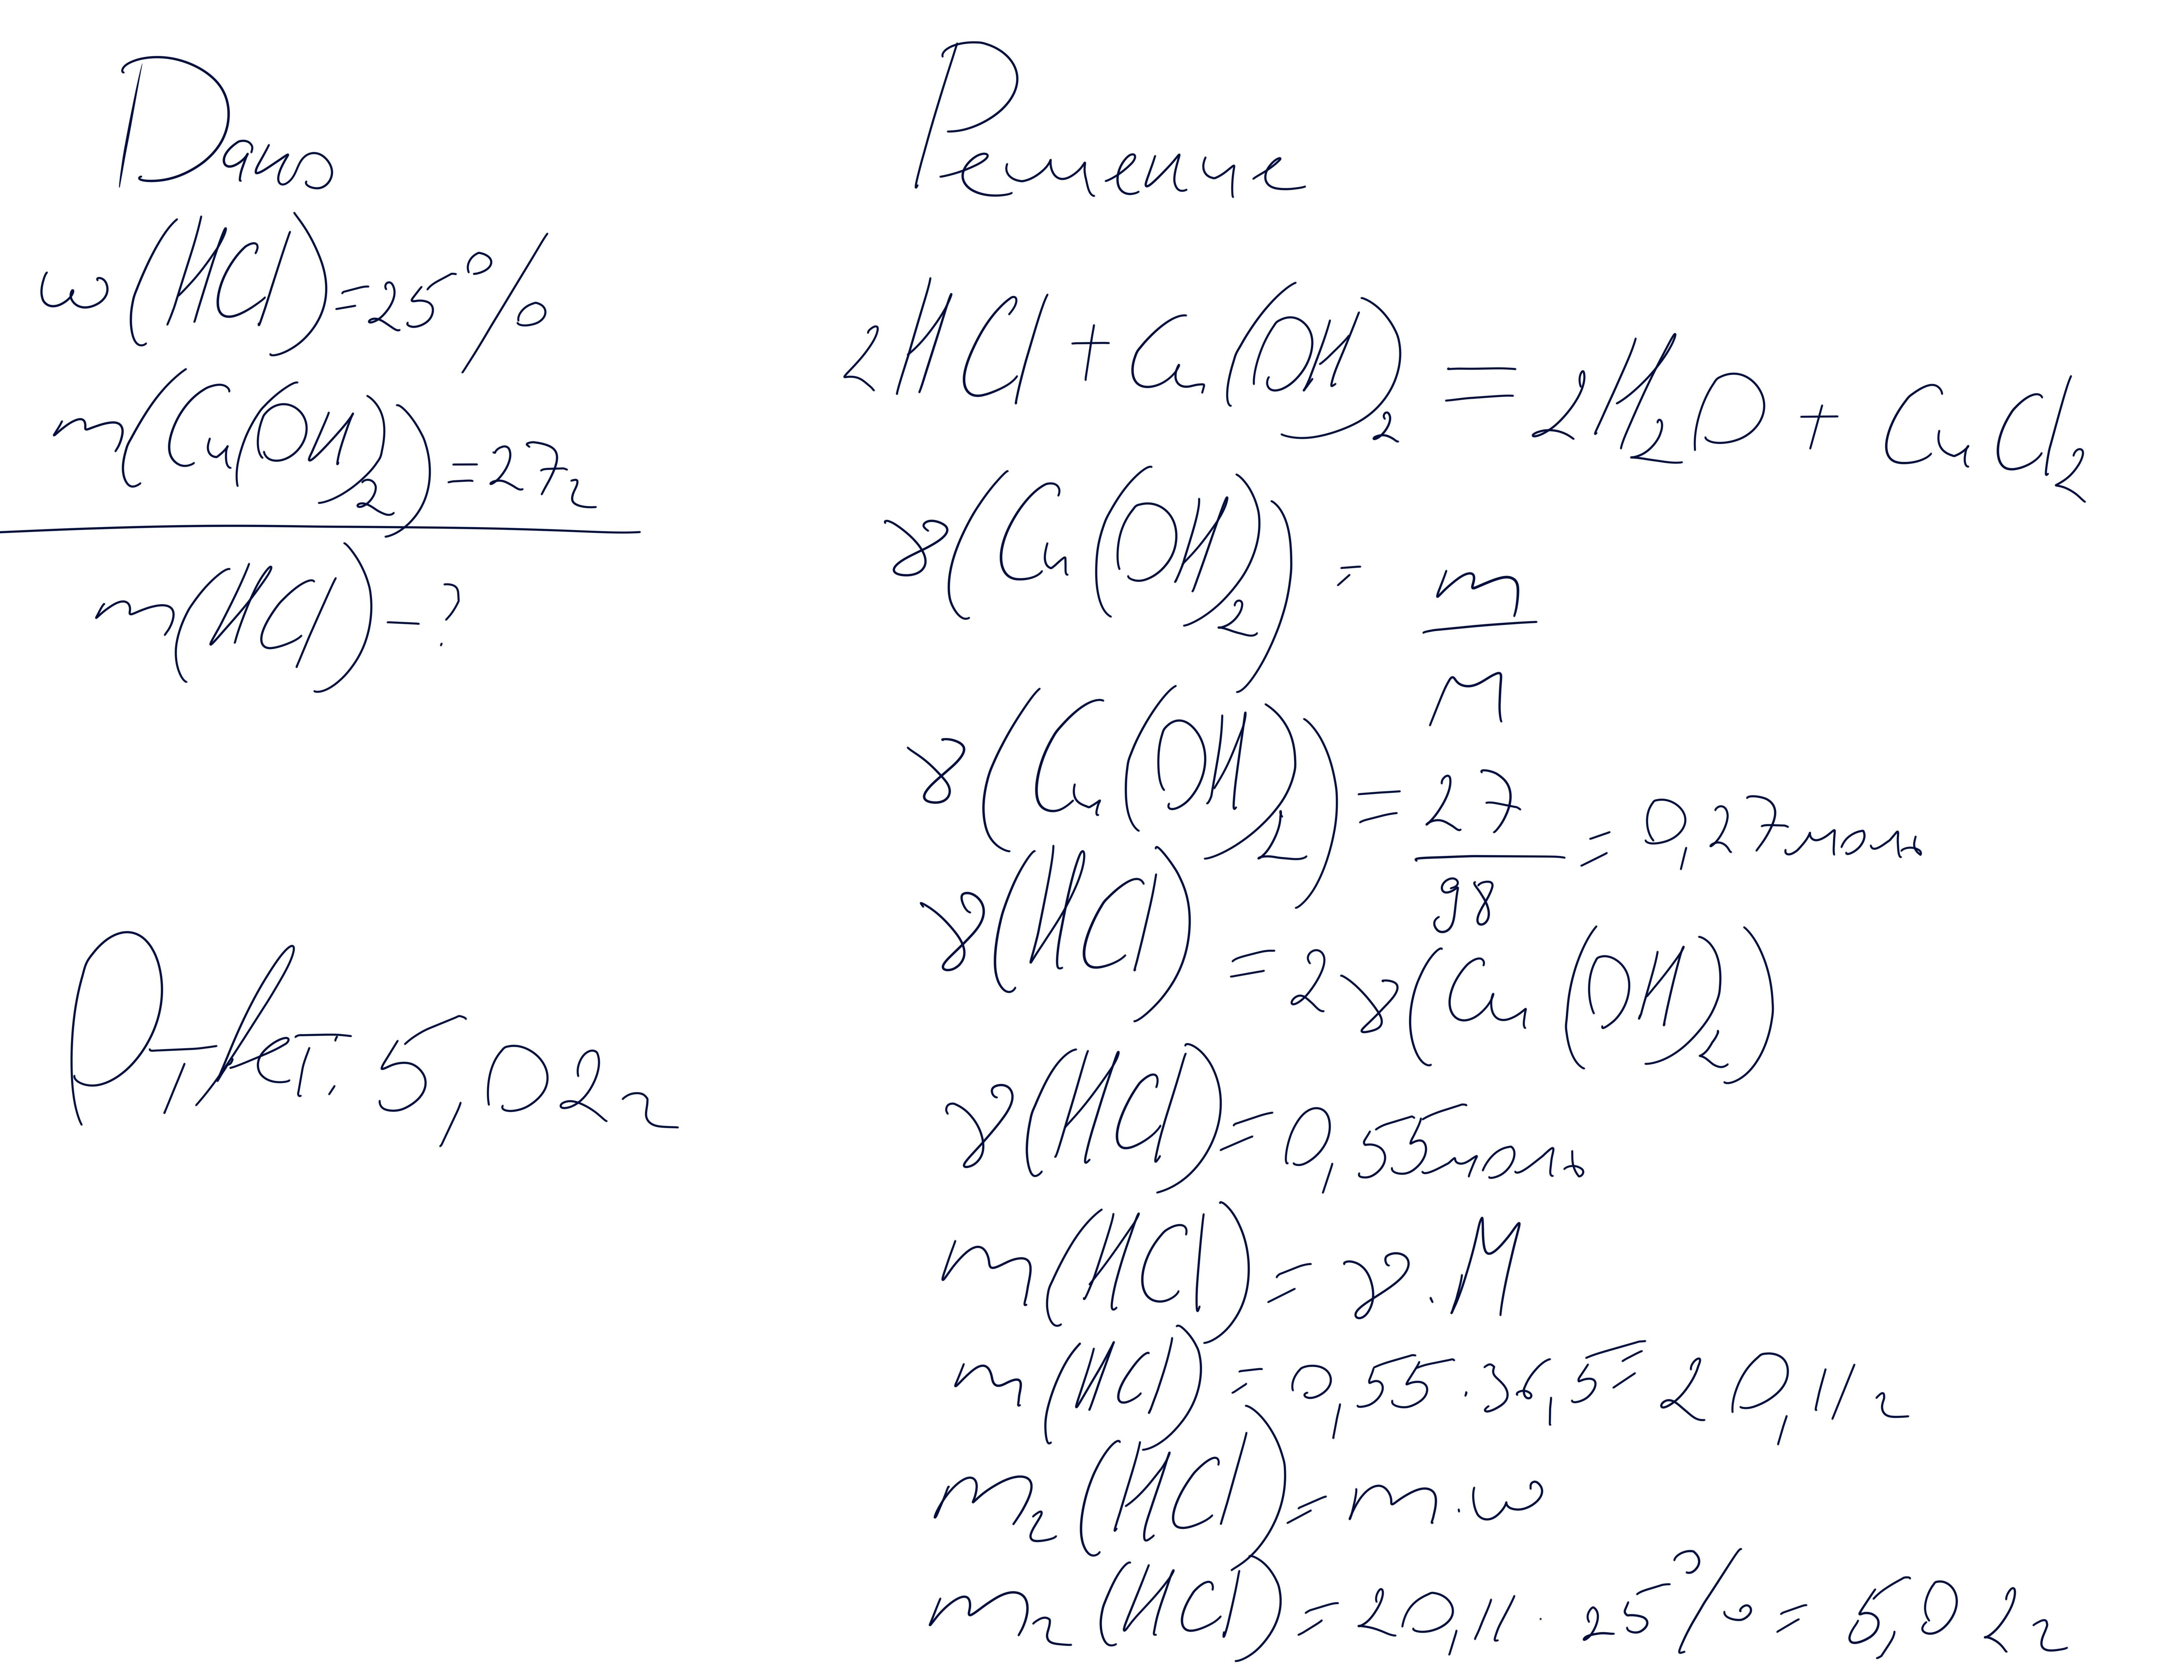 Дано
w(HCl)=25%
m(Cu(OH)2)=27г
m(HCl)-?
Ответ: 5,02г
Решение
2HCl+Cu(OH)2=2H2O+CuCl2
ν(Cu(OH)2)=m/M
ν(Cu(OH)2)=27/98=0,27моль
ν(HCl)=2ν(Cu(OH)2)
ν(HCl)=0,55моль
m(HCl)=ν·M
m(HCl)=0,55·36,5=20,11г
m2(HCl)=m·w
m2(HCl)=20,11·25%=5,02г